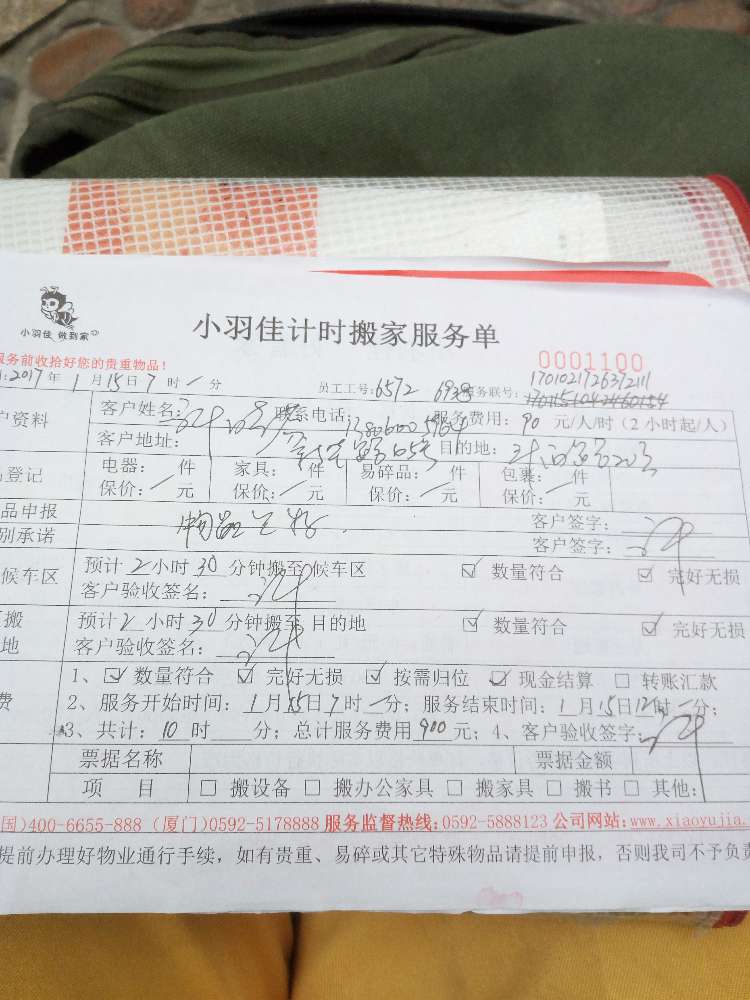 小羽佳 做到家
小羽佳计时搬家服务单
0001100
服务前收拾好您的贵重物品！
2017年1月15日7时一分
员工工号：6572 6938
服务联号：
客户姓名： 联系电话： 服务费用：90元/人/时（2小时起/人）
户资料
客户地址： 目的地：
电器： 件 家具： 件 易碎品： 件 包裹： 件
登记
保价：/元 保价：/元 保价：/元 保价：/元
品申报 客户签字：
别承诺 客户签字：
候车区 预计2小时30分钟搬至候车区 ☑数量符合 ☑完好无损
客户验收签名：
搬 预计2小时30分钟搬至目的地 ☑数量符合 ☑完好无损
地 客户验收签名：
1、☑数量符合 ☑完好无损 ☑按需归位 ☑现金结算 □转账汇款
费 2、服务开始时间：1月15日7时一分；服务结束时间：1月15日12时一分；
3、共计：10时 分；总计服务费用900元；4、客户验收签字：
票据名称 票据金额
项 目 □搬设备 □搬办公家具 □搬家具 □搬书 □其他：
国)400-6655-888（厦门)0592-5178888 服务监督热线：0592-5888123 公司网站：www.xiaoyujia.
提前办理好物业通行手续，如有贵重、易碎或其它特殊物品请提前申报，否则我司不予负责